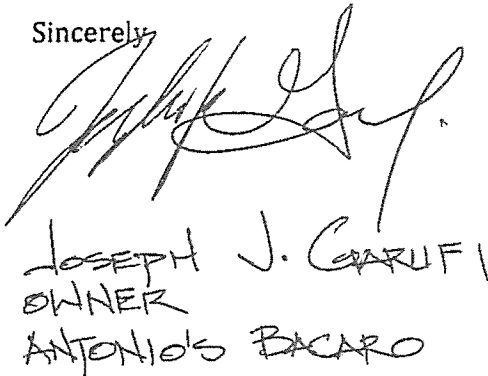 Sincerely,
JOSEPH J. GARUFI
OWNER
ANTONIO'S BACARO